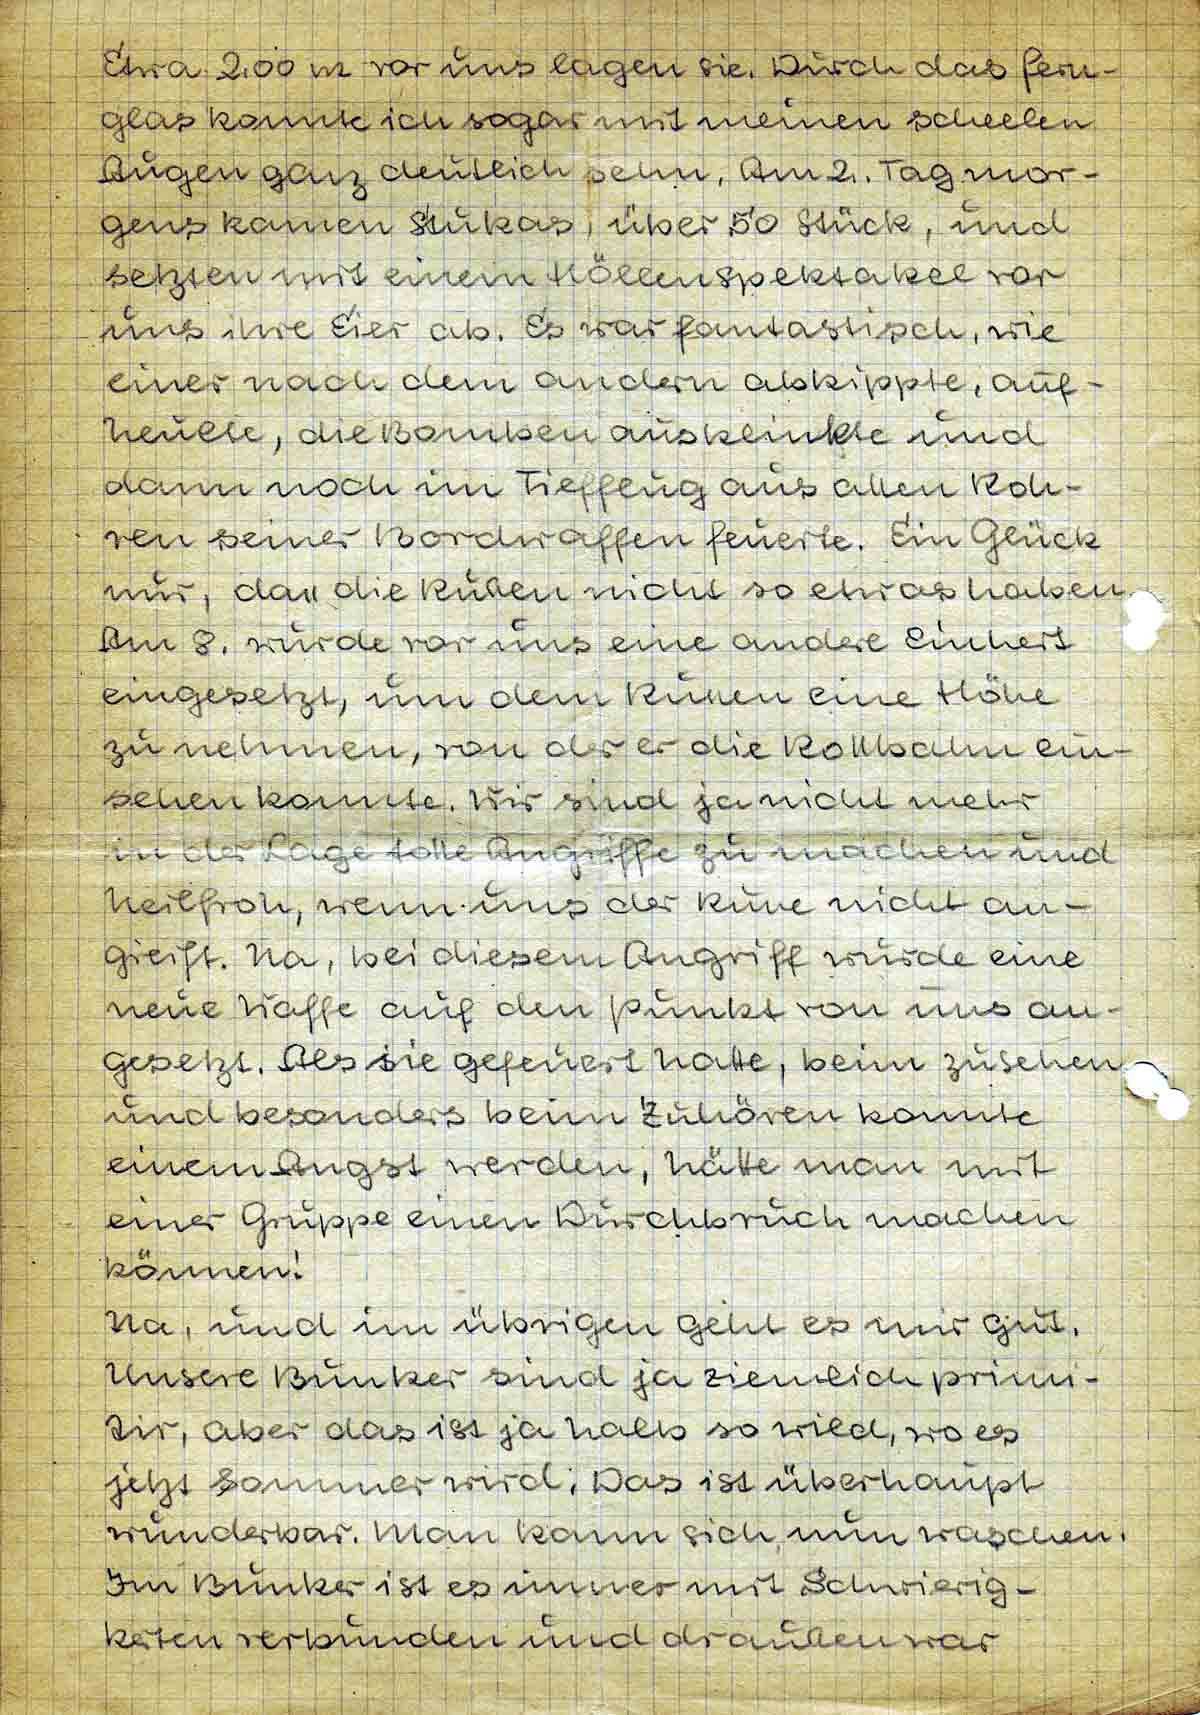 Etwa 200 m vor uns lagen sie. Durch das Fern-
glas konnte ich sogar mit meinen scheelen
Augen ganz deutlich sehn. Am 2. Tag mor-
gens kamen Stukas, über 50 Stück, und
setzten mit einem Höllenspektakel vor
uns ihre Eier ab. Es war fantastisch, wie
einer nach dem andern abkippte, auf-
heulte, die Bomben ausklinkte und
dann noch im Tiefflug aus allen Roh-
ren seiner Bordwaffen feuerte. Ein Glück
nur, daß die Rußen nicht so etwas haben.
Am 8. wurde vor uns eine andere Einheit
eingesetzt, um dem Rußen eine Höhe
zu nehmen, von der er die Rollbahn ein-
sehen konnte. Wir sind ja nicht mehr
in der Lage tolle Angriffe zu machen und
heilfroh, wenn uns der Ruße nicht an-
greift. Na, bei diesem Angriff wurde eine
neue Waffe auf den Punkt von uns an-
gesetzt. Als sie gefeuert hatte, beim zusehen
und besonders beim Zuhören konnte
einem Angst werden, hätte man mit
einer Gruppe einen Durchbruch machen
können!
Na, und im übrigen geht es mir gut.
Unsere Bunker sind ja ziemlich primi-
tiv, aber das ist ja halb so wild, wo es
jetzt Sommer wird. Das ist überhaupt
wunderbar. Man kann sich nun waschen.
Im Bunker ist es immer mit Schwierig-
keiten verbunden und draußen war